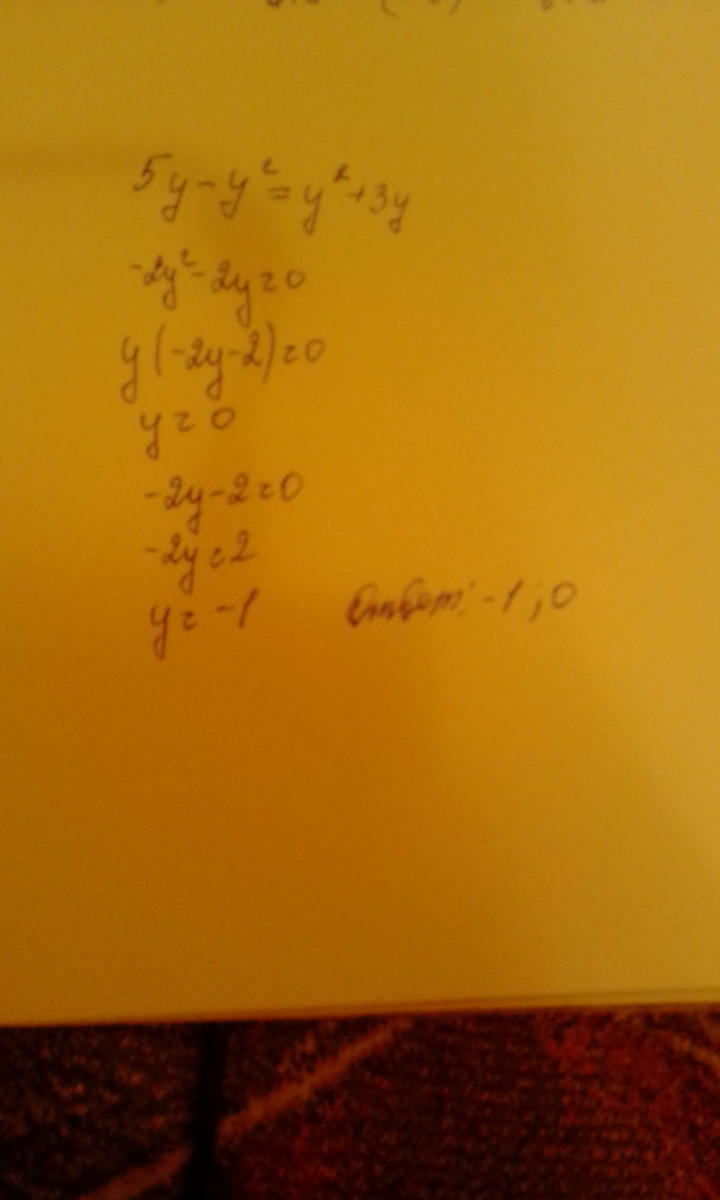 5y-y²=y²+3y
-2y²-2y=0
y(-2y-2)=0
y=0
-2y-2=0
-2y=2
y=-1 Ответ: -1;0